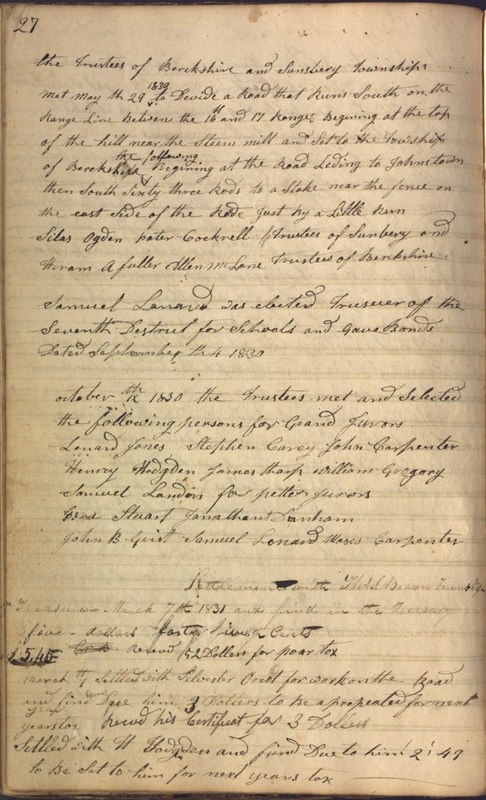 27
the Trustees of Berckshire and Sunbery Townships
met May th 29 1830 to Devide a Road that Runs South on the
Range Line Between the 16 and 17 Range Begining at the top
of the hill near the Steem mill and Set to the Township
of Berckshire the following Begining at the Road Leding to Johnstown
then South Sixty three Rods to a Stake near the fence on
the east Side of the Rode Just by a Little Run
Silas Ogden pater Cockrell Trustees of Sunbery and
Hiram A fuller Allen McLane Trustees of Berckshire
Samuel Lanard was elected Tresurer of the
Seventh Destrect for Schools and Gave Bonds
Dated September th 4 1830
october th 12 1830 the Trustees met and Selected
the following persons for Grand Jurors
Lenard Jones Stephen Carey John Carpenter
Henery Hodgden James tharp William Gregory
Samuel Landon for petter Jurors
Stuart Janathan Lanham
John B Grist Samuel Lenard Moses Carpenter
with Brown Township
Treasurer March 7th 1831 and find in the Treasury
five dollars forty five Cents
$5,45 Recevd 52 Dollers for poar tax
March 7 Settled with Silvester Orcut for work on the Road
and find Due him 3 Dollers to be apropeated for next
years tax Recevd his Certificat for 3 Dollers
Settled with H Hodgden and find Due to him 2:49
to Be Set to him for next years tax